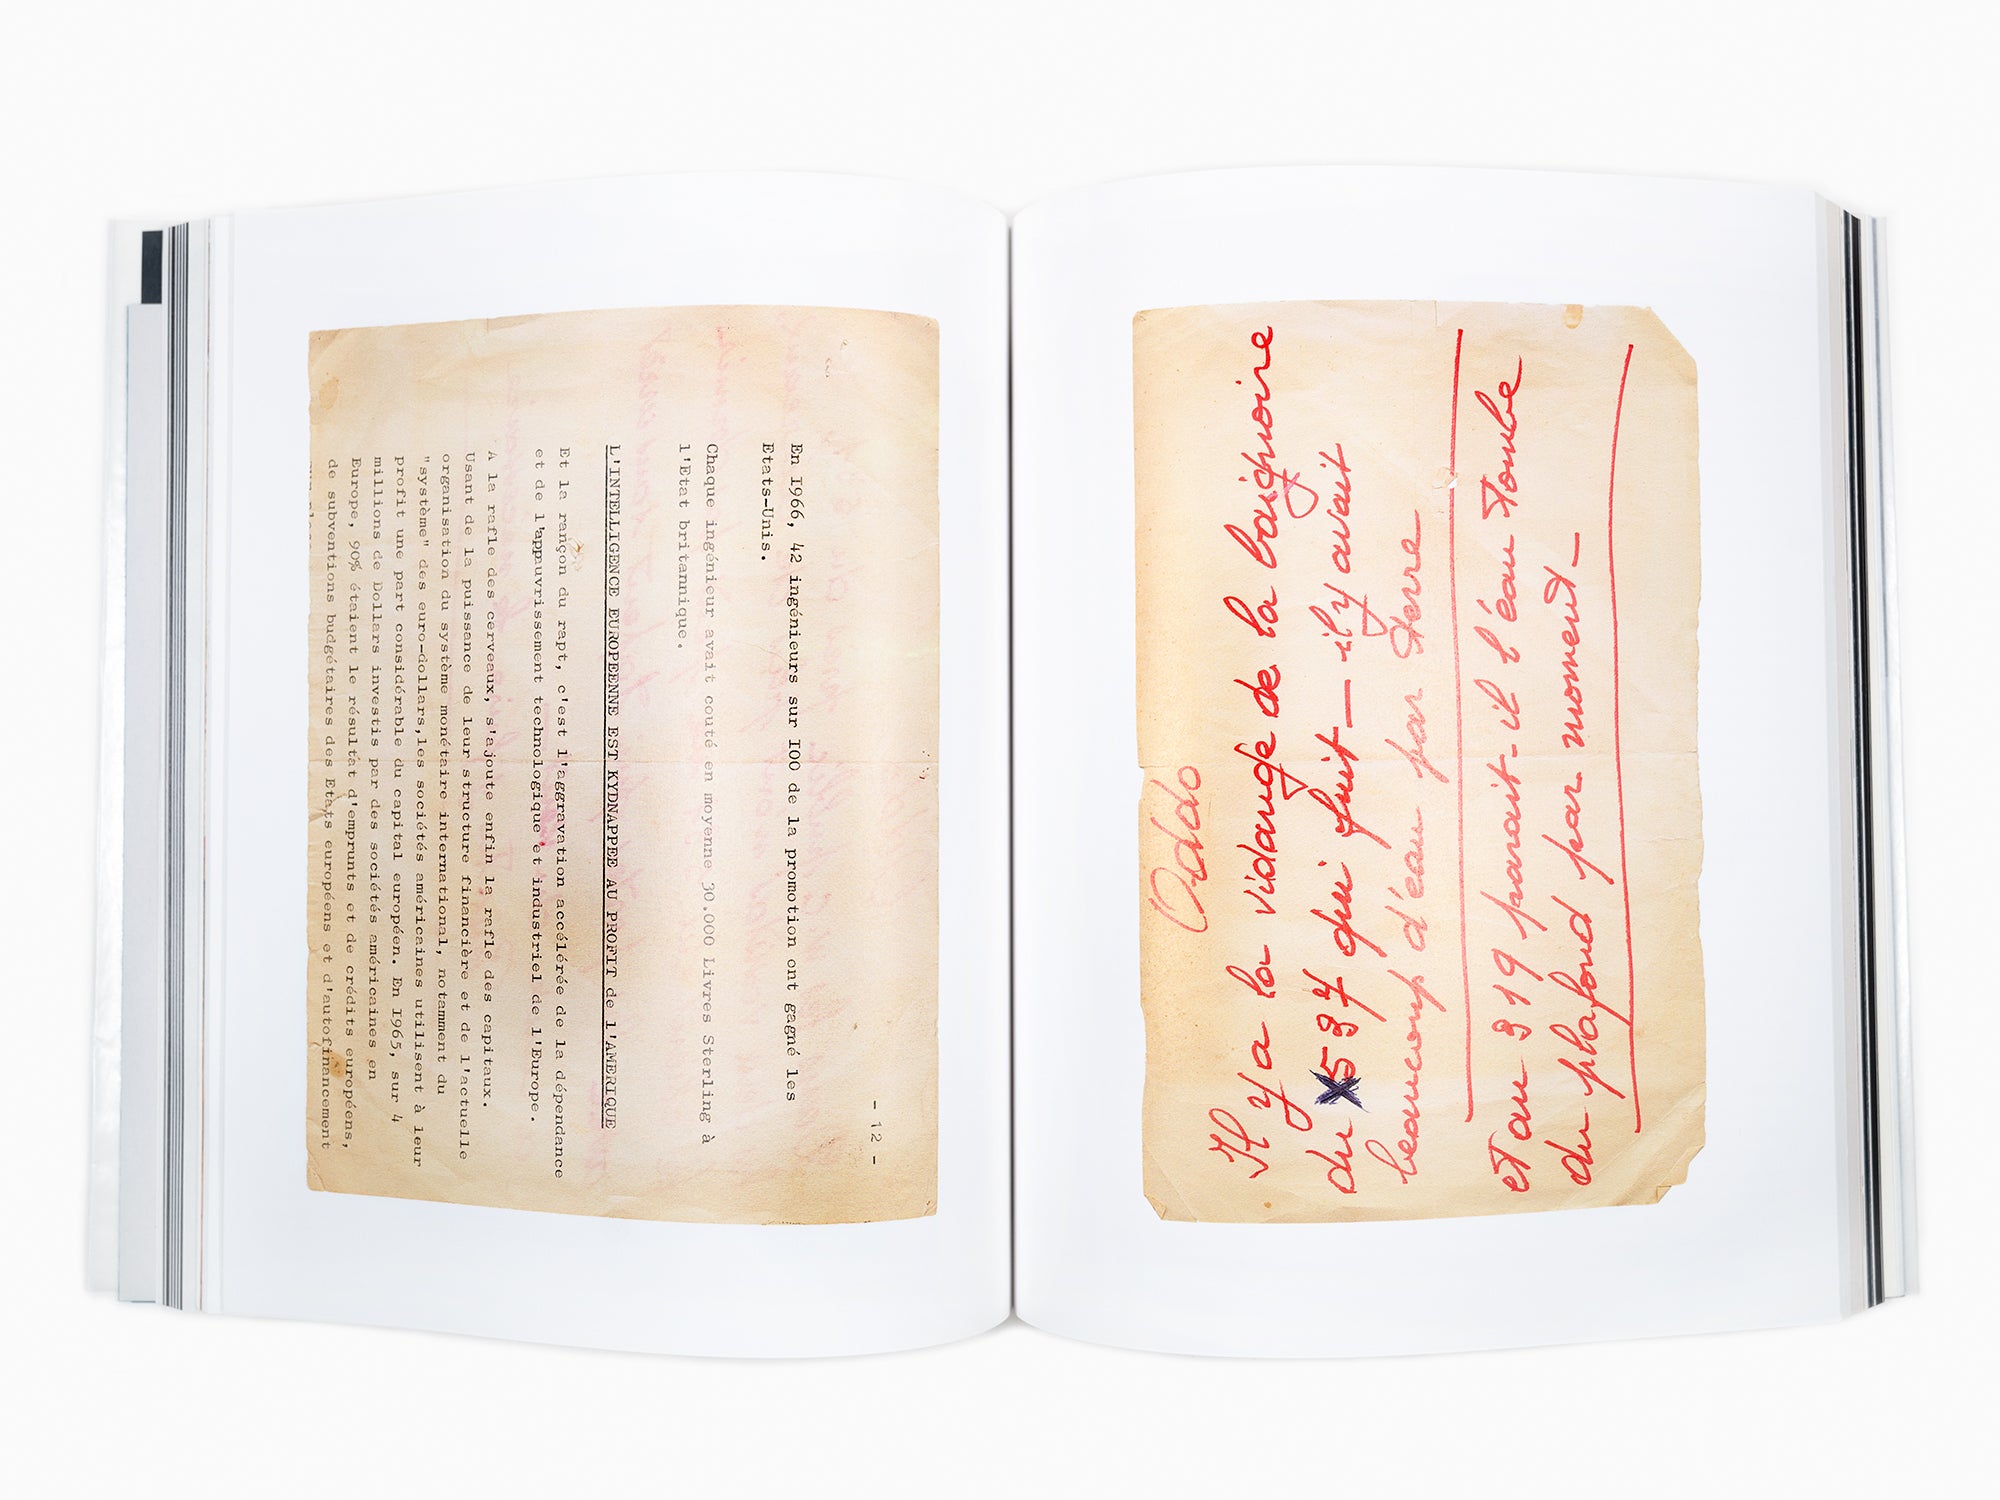 - 12 -
En 1966, 42 ingénieurs sur 100 de la promotion ont gagné les
Etats-Unis.
Chaque ingénieur avait couté en moyenne 30.000 Livres Sterling à
l'Etat britannique.
L'INTELLIGENCE EUROPEENNE EST KYDNAPPEE AU PROFIT de l'AMERIQUE
Et la rançon du rapt, c'est l'aggravation accélérée de la dépendance
et de l'appauvrissement technologique et industriel de l'Europe.
A la rafle des cerveaux, s'ajoute enfin la rafle des capitaux.
Usant de la puissance de leur structure financière et de l'actuelle
organisation du système monétaire international, notamment du
"système" des euro-dollars, les sociétés américaines utilisent à leur
profit une part considérable du capital européen. En 1965, sur 4
millions de Dollars investis par des sociétés américaines en
Europe, 90% étaient le résultat d'emprunts et de crédits européens,
de subventions budgétaires des Etats européens et d'autofinancement
Oddo
Il y a la vidange de la baignoire
du 537 qui fuit - il y avait
beaucoup d'eau par terre
et au 319 parait-il l'eau tombe
du plafond par moment -